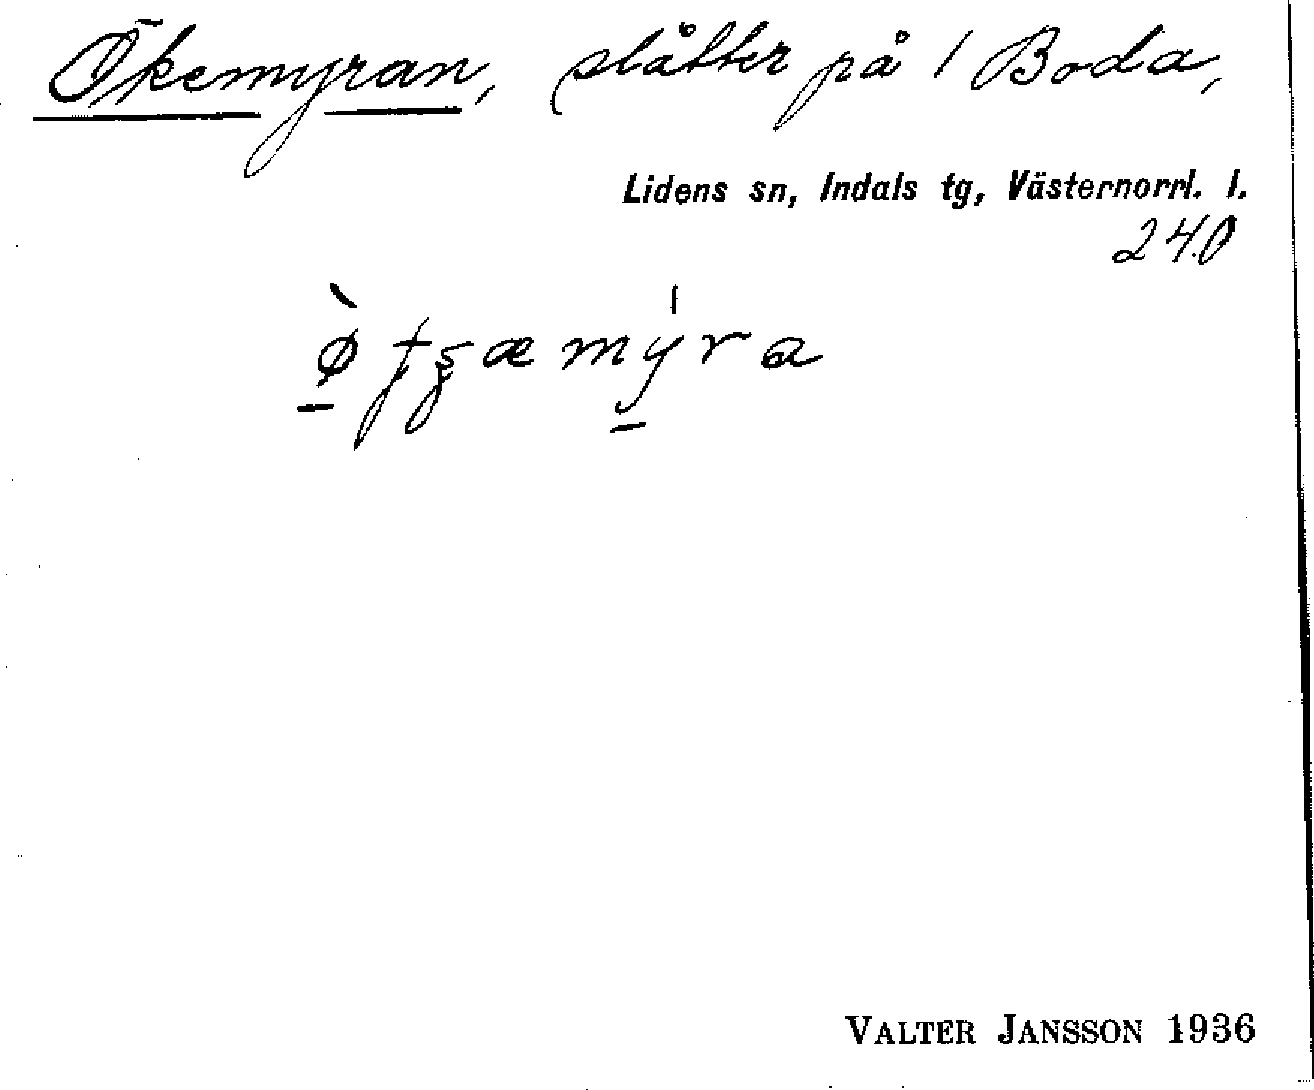 Ökemyran, slåtter på 1 Boda,
Lidens sn, Indals tg, Västernorrl. l.
240
VALTER JANSSON 1936